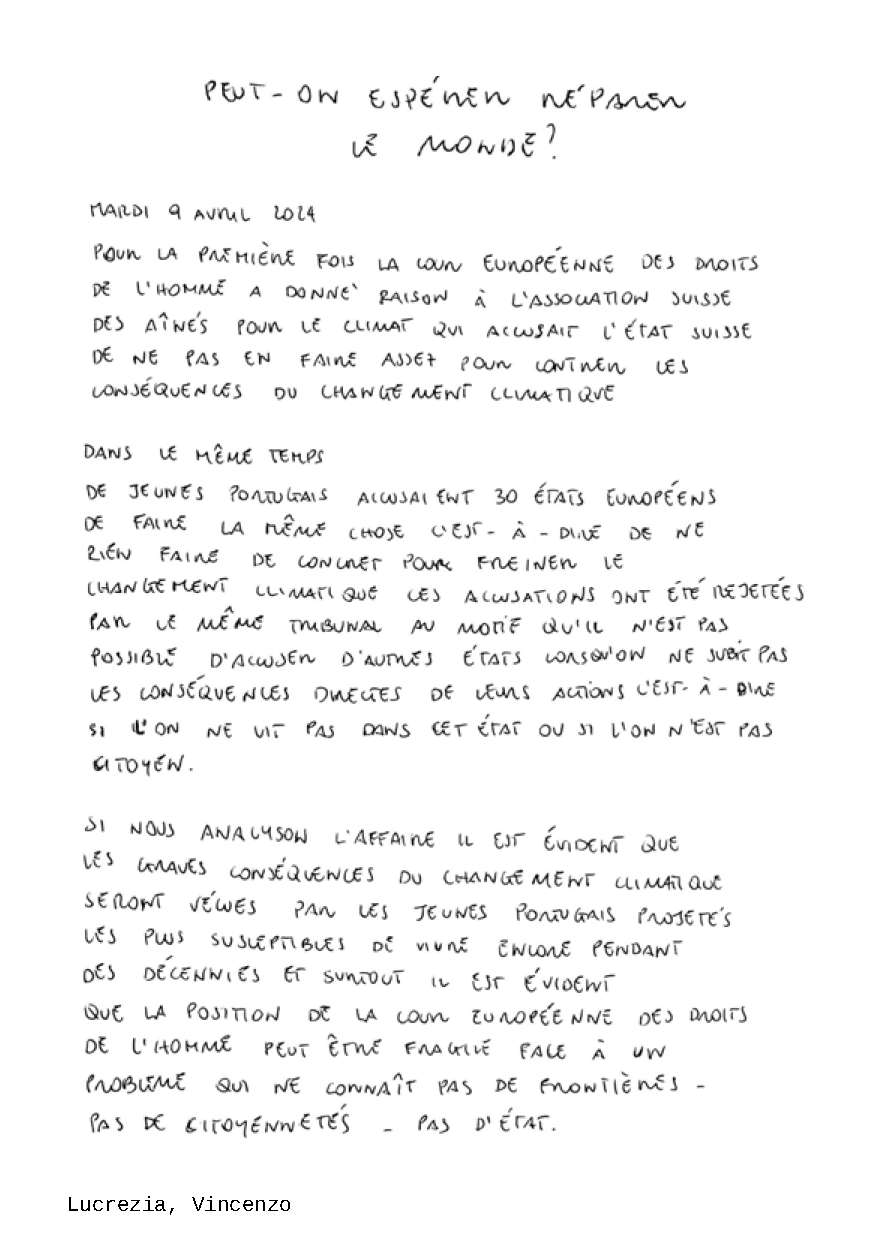 PEUT-ON ESPÉRER RÉPARER
LE MONDE?
MARDI 9 AVRIL 2024
POUR LA PREMIÈRE FOIS LA COUR EUROPÉENNE DES DROITS
DE L'HOMME A DONNÉ RAISON À L'ASSOCIATION SUISSE
DES AÎNÉS POUR LE CLIMAT QUI ACCUSAIT L'ÉTAT SUISSE
DE NE PAS EN FAIRE ASSEZ POUR CONTRER LES
CONSÉQUENCES DU CHANGEMENT CLIMATIQUE
DANS LE MÊME TEMPS
DE JEUNES PORTUGAIS ACCUSAIENT 30 ÉTATS EUROPÉENS
DE FAIRE LA MÊME CHOSE C'EST-À-DIRE DE NE
RIEN FAIRE DE CONCRET POUR FREINER LE
CHANGEMENT CLIMATIQUE CES ACCUSATIONS ONT ÉTÉ REJETÉES
PAR LE MÊME TRIBUNAL AU MOTIF QU'IL N'EST PAS
POSSIBLE D'ACCUSER D'AUTRES ÉTATS LORSQU'ON NE SUBIT PAS
LES CONSÉQUENCES DIRECTES DE LEURS ACTIONS C'EST-À-DIRE
SI L'ON NE VIT PAS DANS CET ÉTAT OU SI L'ON N'EST PAS
CITOYEN.
SI NOUS ANALYSON L'AFFAIRE IL EST ÉVIDENT QUE
LES GRAVES CONSÉQUENCES DU CHANGEMENT CLIMATIQUE
SERONT VÉCUES PAR LES JEUNES PORTUGAIS PROJETÉS
LES PLUS SUSCEPTIBLES DE VIVRE ENCORE PENDANT
DES DÉCENNIES ET SURTOUT IL EST ÉVIDENT
QUE LA POSITION DE LA COUR EUROPÉENNE DES DROITS
DE L'HOMME PEUT ÊTRE FRAGILE FACE À UN
PROBLEME QUI NE CONNAÎT PAS DE FRONTIÈRES -
PAS DE CITOYENNETÉS - PAS D'ÉTAT.
Lucrezia, Vincenzo